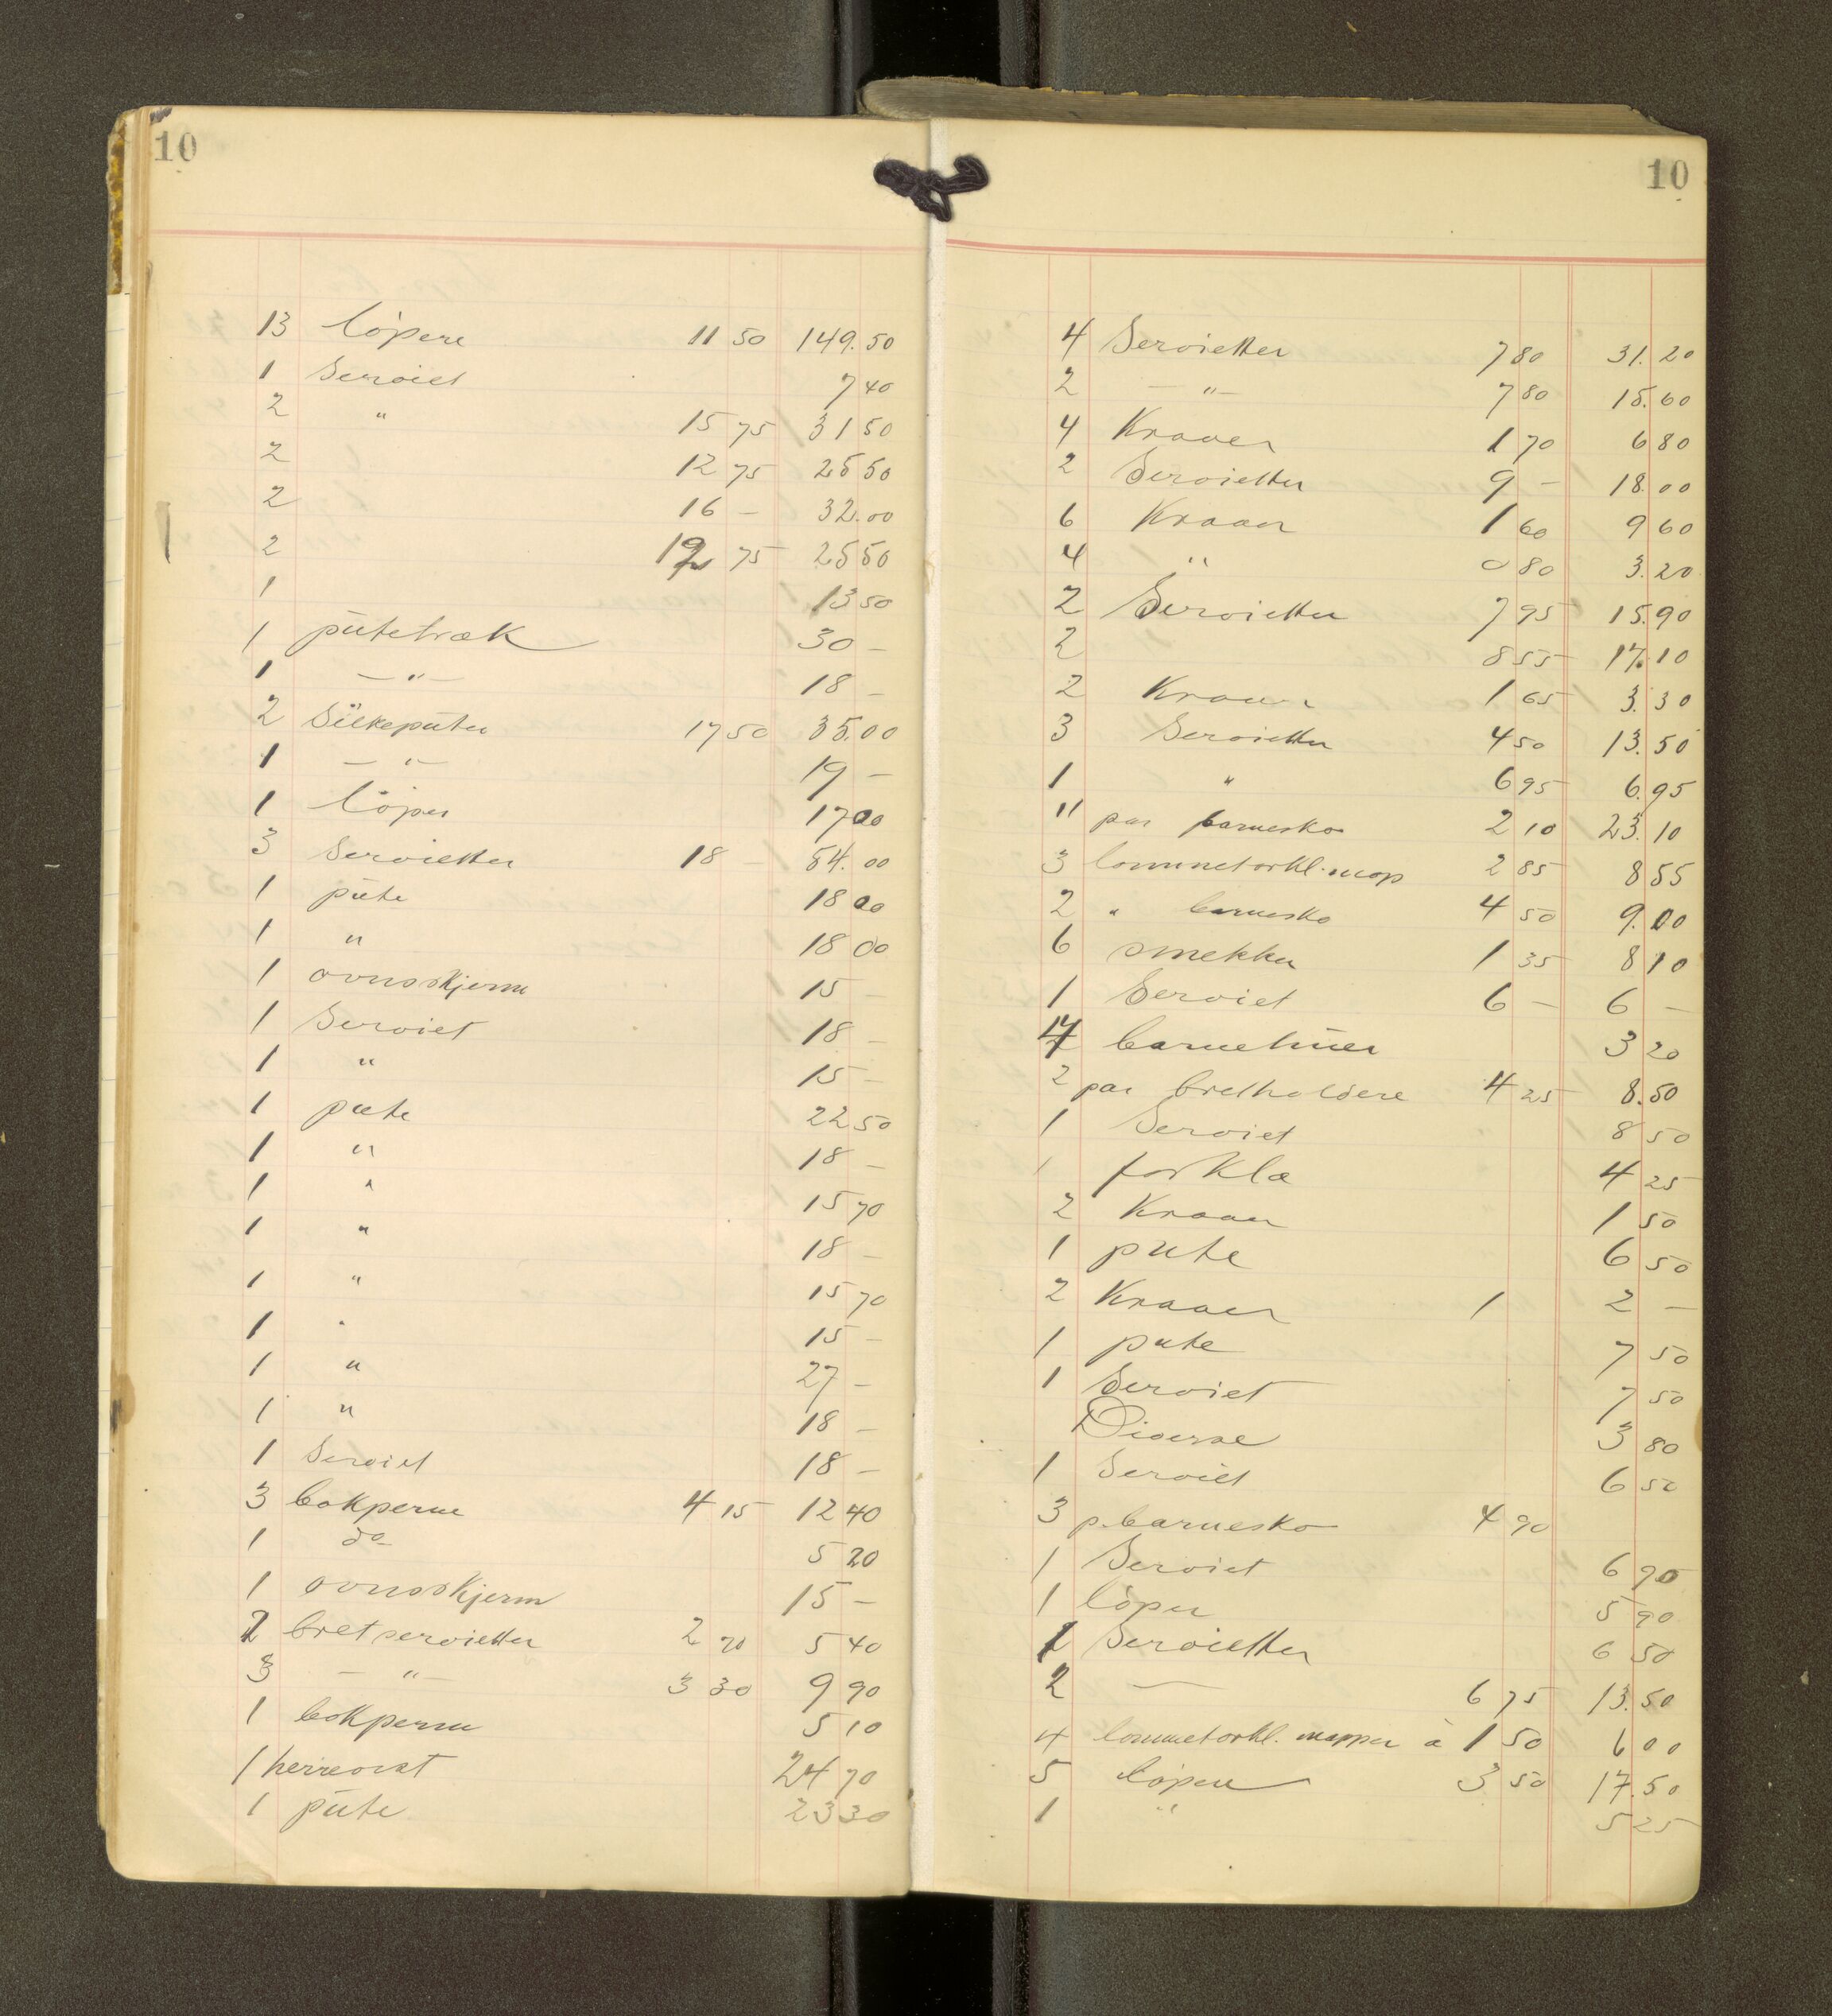 10
13 löpere 11 50 149.50
1 Serviet 7 40
2 " 15 75 31 50
2 12 75 25 50
2 16 – 32.00
2 12 75 25 50
1 13 50
1 pütetræk 30 –
1 –"– 18 –
2 Silkepüter 17 50 35.00
1 –"– 19 –
1 löper 17 00
3 Servietter 18 – 54.00
1 püte 18 00
1 " 18 00
1 ovnsskjerm 15 –
1 Serviet 18 –
1 " 15 –
1 püte 22 50
1 " 18 –
1 " 15 70
1 " 18 –
1 " 15 70
1 " 15 –
1 " 27 –
1 " 18 –
1 Serviet 18 –
3 bokperm 4 15 12 40
1 do 5 20
1 ovnsskjerm 15 –
2 bretservietter 2 70 5 40
3 –"– 3 30 9 90
1 bokperm 5 10
1 herrevest 24 70
1 püte 23 30
10
4 Servietter 7 80 31.20
2 –"– 7 80 15.60
4 Kraver 1 70 6 80
2 Servietter 9 – 18.00
6 Kraver 1 60 9 60
4 " 0 80 3.20
2 Servietter 7 95 15.90
2 8 55 17.10
2 Kraver 1 65 3.30
3 Servietter 4 50 13.50
1 " 6 95 6.95
11 par barnesko 2 10 23.10
3 lommetörkl. map 2 85 8 55
2 " barnesko 4 50 9.00
6 smekker 1 35 8 10
1 Serviet 6 – 6 –
4 barnehüer 3 20
2 par bretholdere 4 25 8.50
1 Serviet 8 50
1 forkla 4 25
2 Kraver 1 50
1 pute 6 50
2 Kraver 1 2 –
1 pute 7 50
1 Serviet 7 50
Diverse 3 80
1 Serviet 6 50
3 p. barnesko 4 90
1 Serviet 6 90
1 löper 5 90
1 Servietter 6 50
2 — 6 75 13.50
4 lommetörkl. mapper à 1 50 6 00
5 löpere 3 50 17.50
1 " 5 25